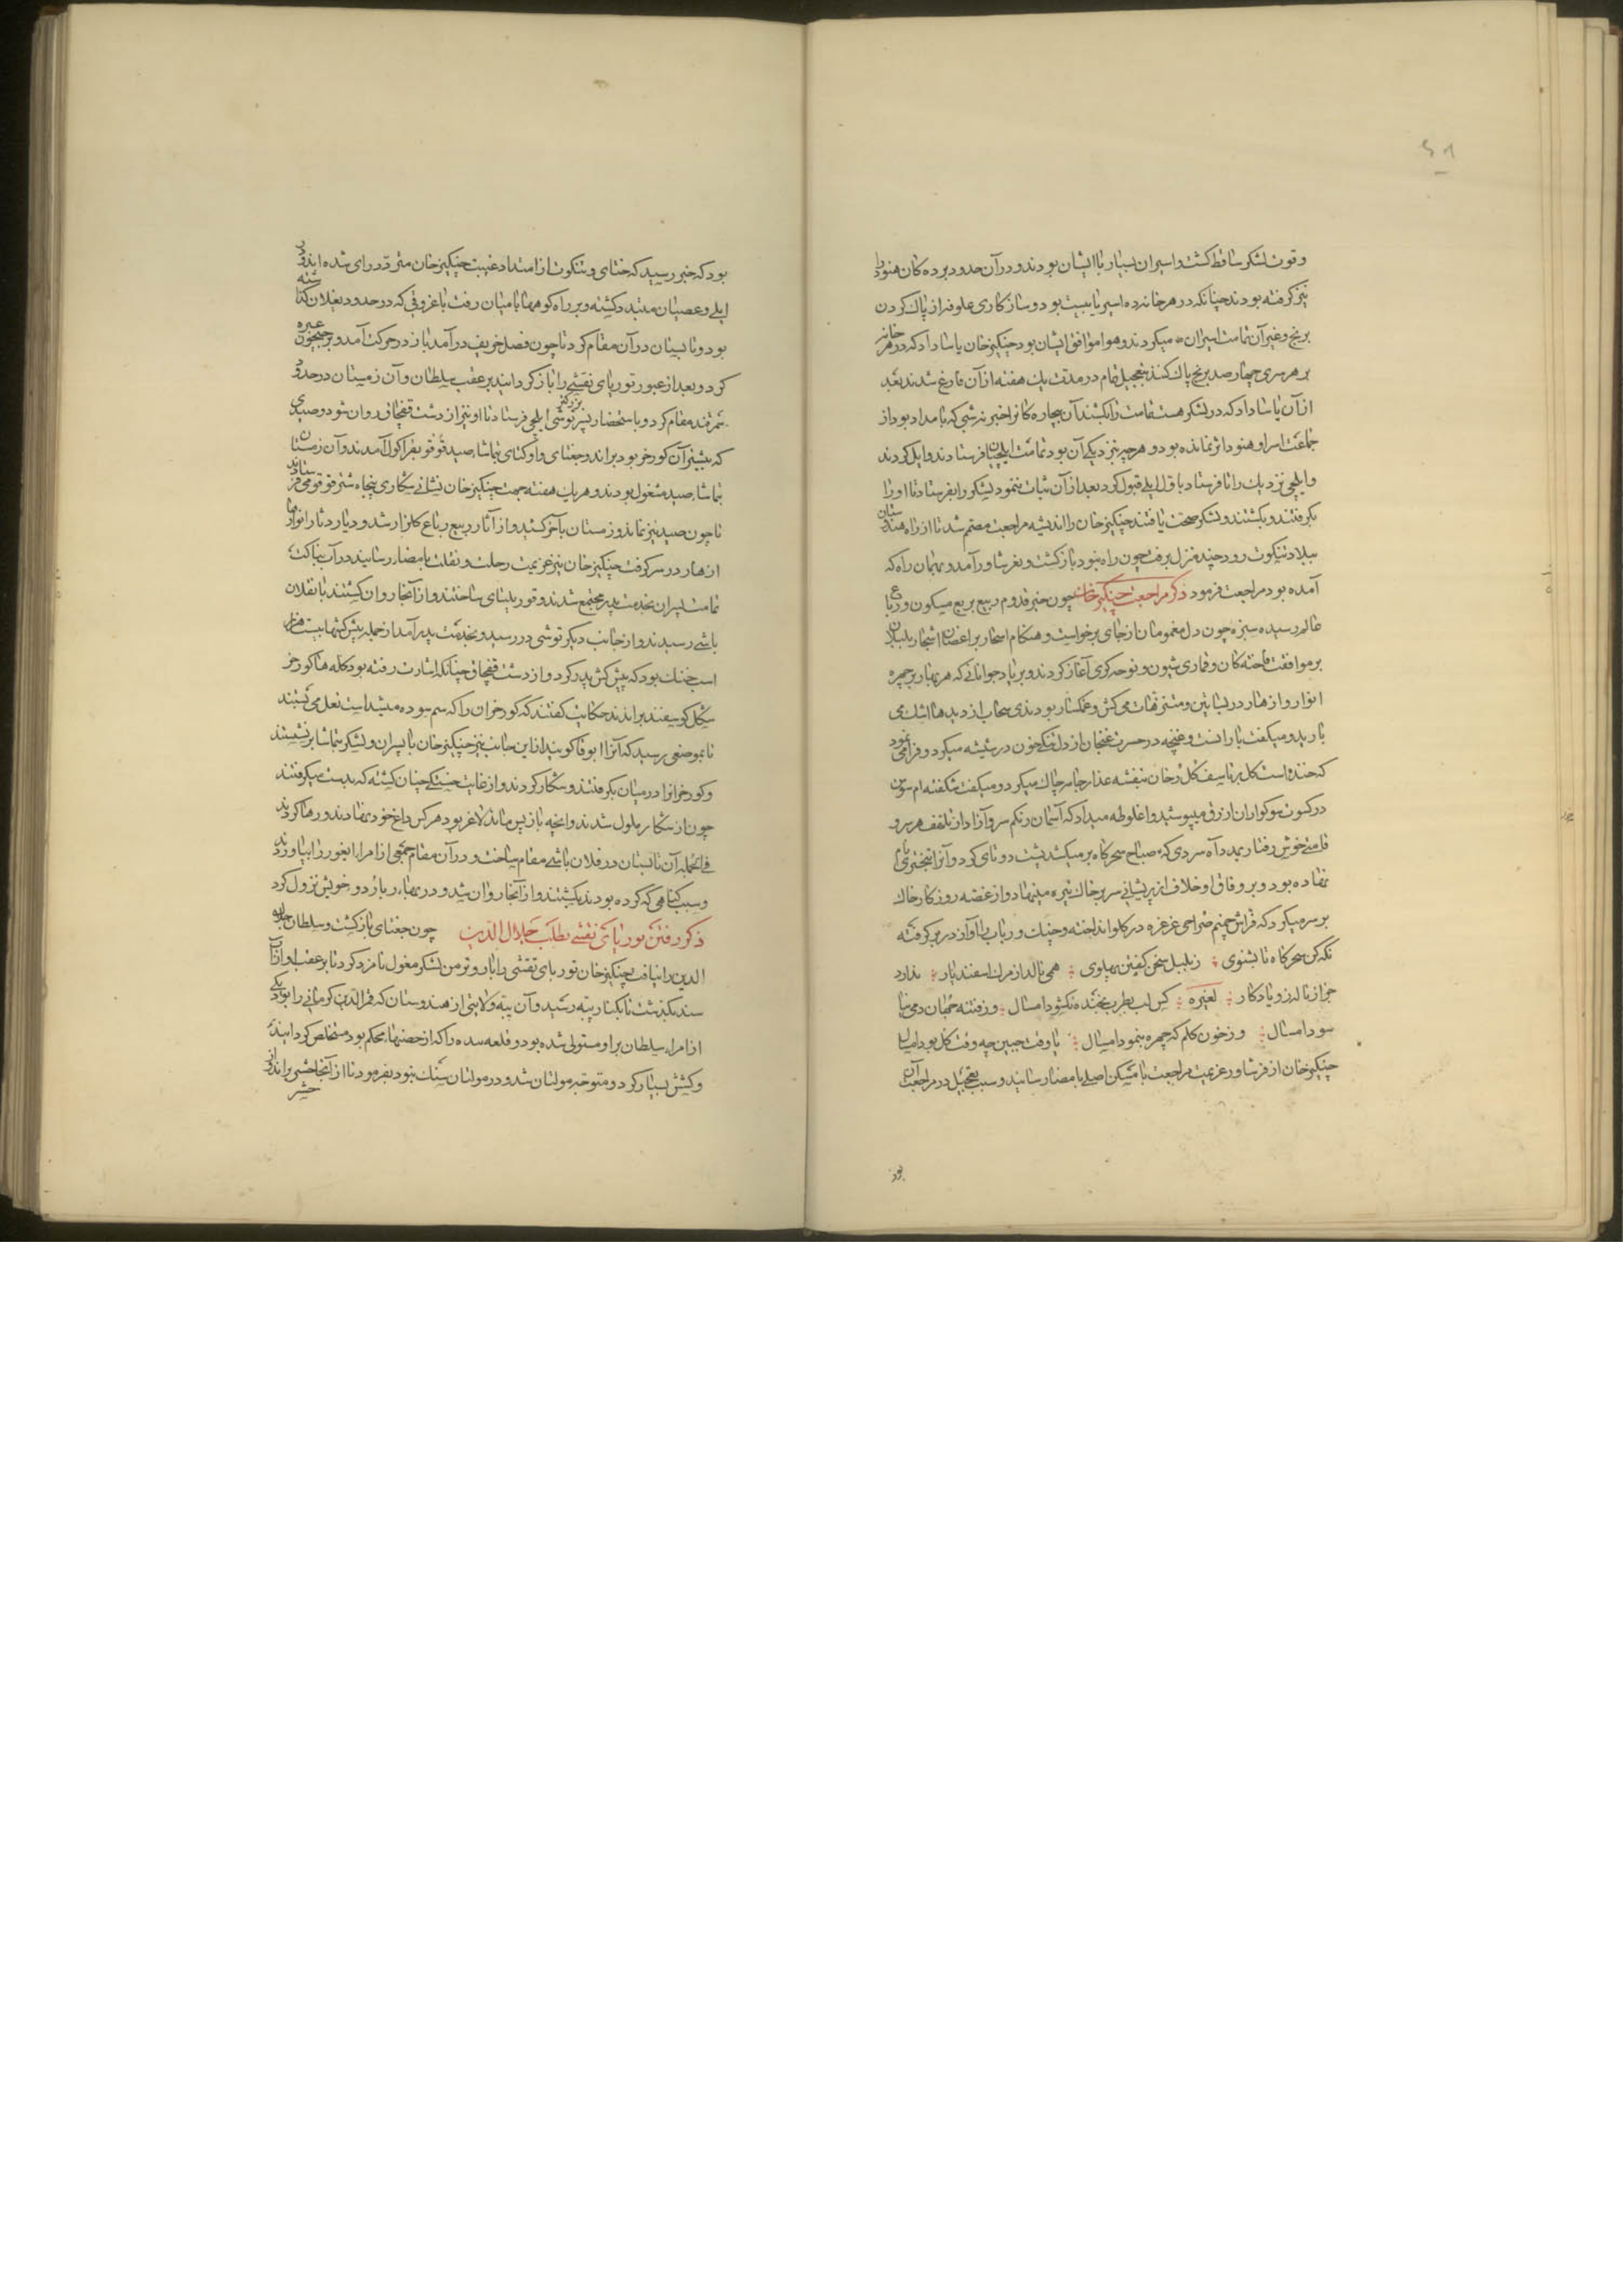 ۶۹
وقوت لشکر ساقط کشت و اسیران بسیار با ایشان بودند و در آن حدود برده کان هنود را
نیز کرفته بودند چنانکه در هر خانه ده اسیر تا بیست بود و ساز کاری علوفه از پاک کردن
برنج و غیر آن تمامت اسیران میکردند و هوا موافق ایشان بود چنکیز خان یاسا داد که در هر خانه
بر هر سری چهار صد برنج پاک کنند بتعجیل تمام در مدت یک هفته از آن فارغ شدند بعد
از آن یاسا داد که در لشکر هست تمامت را بکشند آن بیچاره کانرا خبر نه شبی که بامداد بود از
جماعت اسرا و هنود اثر نمانده بود و هر چه نزدیکی آن بود تمامت ایلچیان فرستادند و ایل کردند
و ایلچی نزدیک رانا فرستاد باول ایلی قبول کرد بعد از آن ثبات ننمود لشکر را بفرستاد تا او را
بکرفتند و بکشتند و لشکر صحت یافتند چنکیز خان را اندیشه مراجعت مصمم شد تا از راه هندستان
ببلاد تنکوت رود چند منزل برفت چون راه نبود باز کشت و بفرشاور آمد و بهمان راه که
آمده بود مراجعت فرمود ذکر مراجعت چنکیز خان چون خبر قدوم ربیع بربع میکون و رباع
عالم رسیده سبزه چون دل مغمومان از جای برخواست و هنکام اسحار بر اغصان اشجار بلبلان
بر موافقت فاخته کان و قماری شیون و نوحه کری آغاز کردند و بر یاد جوانانی که هر بهار بر چهره
انوار و ازهار در بساتین و متنزهات می کش و غمکسار بودندی سحاب از دیدها اشک می
بارید و میکفت بارانست و غنچه در حسرت غنجان از دلتنکی خون در شیشه میکرد و فرا می نمود
که خنده است کل بر تاسف کل رخان بنفشه عذار جامه چاک میکرد و میکفت شکفته ام سوسن
در کسوت سوکواران ازرق میپوشید و اغلوطه میداد که آسمان رنکم سرو آزاد از تلهف هر سرو
قامتی خوش رفتار بمدد آه سردی که صباح سحرکاه بر میکشد پشت دو تای کرد و آنرا تبختر نام
نهاده بود و بر وفاق او خلاف از پریشانی سر بر خاک تیره مینهاد و از غصه روزکار خاک
بر سر میکرد که فراش چمنم صراحی غرغره در کلو انداخته و چنک و رباب را آواز در بر کرفته
نکه کن سحرکاه تا بشنوی زبلبل سخن کفتن پهلوی همی نالد از مرک اسفندیار ندارد
جز از ناله زو یادکار لغیره کس لب بطرب بخنده نکشود امسال وز فتنه جهان دمی نیا
سود امسال وز خون کلم که چهره بنمود امسال با وقت چنین چه وقت کل بود امسال
چنکیز خان از فرشاور عزیمت مراجعت با مسکن اصلی بامضا رسانید و سبب تعجیل در مراجعت آن
بود
بود که خبر رسید که ختای و تنکوت از امتداد غیبت چنکیز خان متردد رای شده اند و در
ایلی و عصیان متبدد کشته و بر راه کوهها بامیان رفت با غروقی که در حدود بغلان کذاشته
بود و تابستان در آن مقام کرد تا چون فصل خریف در آمد باز در حرکت آمد و بر جیحون عبره
کرد و بعد از عبور توربای نقشی را باز کردانید بر عقب سلطان و آن زمستان در حدود
سمرقند مقام کرد و باستحضار پسر بزرکتر توشی ایلچی فرستاد تا او نیز از دشت قفچاق روان شود و صیدی
که بیشتر آن کورخر بود براند و جغتای و اوکتای بتماشاء صید قوقو بقراکول آمدند و آن زمستان
بتماشاء صید مشغول بودند و هر یک هفته جهت چنکیز خان نشانی شکاری پنجاه شتر قوقو می فرستادند
تا چون صید نیز نماند و زمستان بآخر کشید و از آثار ربیع رباع کلزار شد و دیار دثار انوار
ازهار در سر کرفت چنکیز خان نیز عزیمت رحلت و نقلت بامضا رسانید در آب بناکت
تمامت پسران بخدمت پدر مجتمع شدند و قوریلتای ساختند و از آنجا روان کشتند تا بقلان
باشی رسیدند و از جانب دیکر توشی در رسید و بخدمت پدر آمد از جمله پیش کشها بیست هزار
اسب خنک بود که پیش کش پدر کرد و از دشت قفچاق چنانکه اشارت رفته بود کله ها کورخر
شکل کوسفند براندند حکایت کفتند که کورخران را که سم سوده میشداست نعل می بستند
تا بموضعی رسید که آنرا ابوقا کویند از این جانب نیز چنکیز خان با پسران و لشکر بتماشا بر نشستند
و کورخرانرا در میان بکرفتند و شکار کردند و از غایت خستکی چنان کشته که بدست میکرفتند
چون از شکار ملول شدند و آنچه باز پس ماند لاغر بود هر کس داغ خود نهادند و رها کردند
فی الجمله آن تابستان در قلان باشی مقام ساخت و در آن مقام جمعی از امراء ایغور را بیاوردند
و سبب کناهی که کرده بودند بکشتند و از آنجا روان شد و در بهار باردو خویش نزول کرد
ذکر رفتن توربای نقشی بطلب جلال الدین چون جغتای باز کشت و سلطان جلال
الدین را نیافت چنکیز خان توربای نقشی را با دو تومن لشکر مغول نامزد کرد تا بر عقب او از آب
سند بکذشت تا بکنار بیه رسید و آن بیه ولایتی از هندوستان که قمر الدین کرمانی را بود یکی
از امراء سلطان بر او مستولی شده بود و قلعه سده را که از حصنهاء محکم بود مستخلص کردانید
و کشش بسیار کرد و متوجه مولتان شد و در مولتان سنک نبود بفرمود تا از آنجا حشر براندند از
حشر